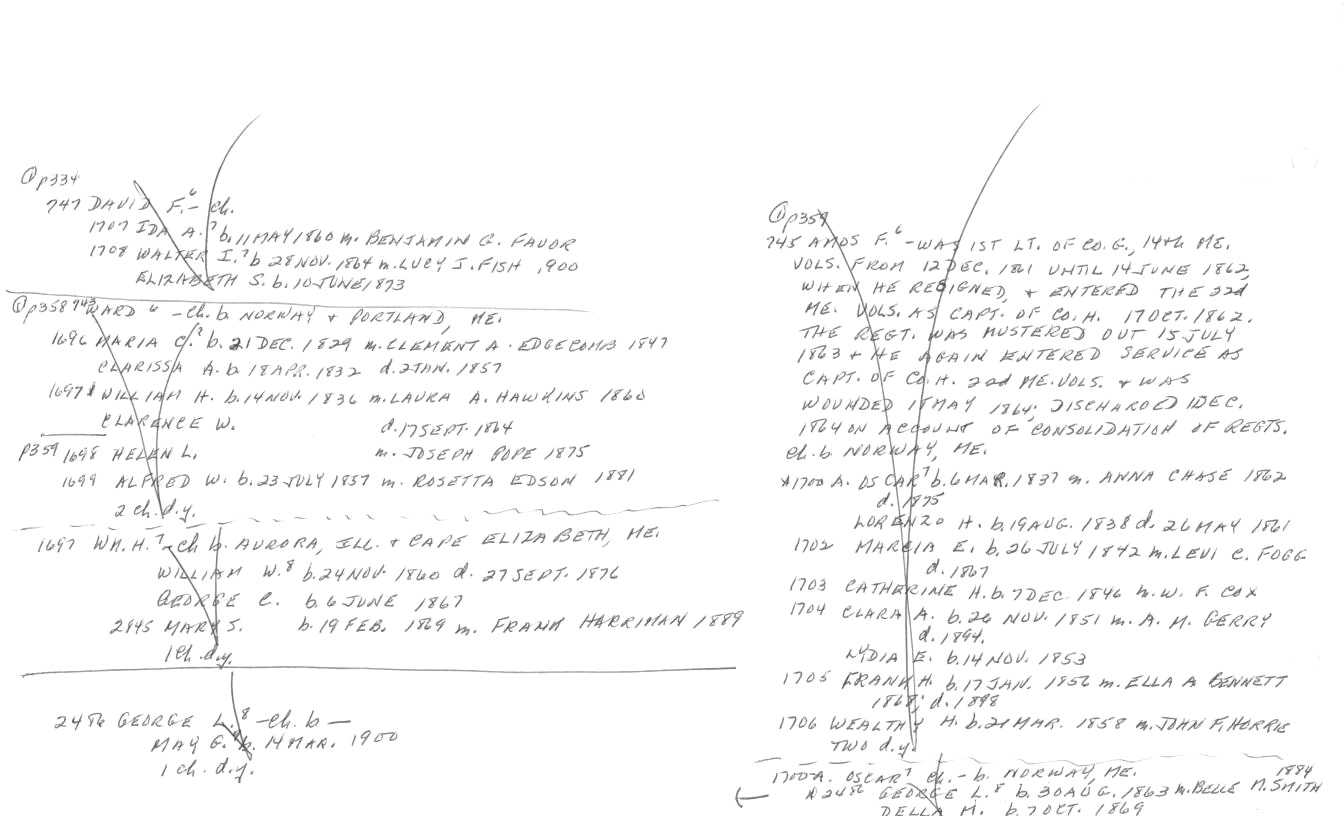 ① p334
747 DAVID F.⁶ - ch.
1707 IDA A.⁷ b. 11 MAY 1860 m. BENJAMIN G. FAVOR
1708 WALTER I.⁷ b 28 NOV. 1864 m. LUCY J. FISH ,900
ELIZABETH S. b. 10 JUNE 1873
① p358 743 WARD ⁶ - ch. b NORWAY + PORTLAND, ME.
1696 MARIA C.⁷ b. 21 DEC. 1829 m. CLEMENT A. EDGECOMB 1847
CLARISSA A. b 18 APR. 1832 d. 2 JAN. 1857
1697 WILLIAM H. b. 14 NOV. 1836 m. LAURA A. HAWKINS 1860
CLARENCE W. d. 17 SEPT. 1864
p359 1698 HELEN L. m. JOSEPH POPE 1875
1699 ALFRED W. b. 23 JULY 1857 m. ROSETTA EDSON 1881
2 ch. d.y.
1697 WM. H.⁷ - ch b. AURORA, ILL. + CAPE ELIZABETH, ME.
WILLIAM W.⁸ b. 24 NOV. 1860 d. 27 SEPT. 1876
GEORGE C. b. 6 JUNE 1867
2845 MARY J. b. 19 FEB. 1869 m. FRANK HARRIMAN 1889
1 ch. d.y.
GEORGE L.⁸ - ch. b —
MAY G.⁹ b. 14 MAR. 1900
1 ch. d.y.
① p359
745 AMOS F.⁶ - WAS 1ST LT. OF CO. G., 14th ME.
VOLS. FROM 12 DEC. 1861 UNTIL 14 JUNE 1862,
WHEN HE RESIGNED, + ENTERED THE 22d
ME. VOLS. AS CAPT. OF CO. H. 17 OCT. 1862.
THE REGT. WAS MUSTERED OUT 15 JULY
1863 + HE AGAIN ENTERED SERVICE AS
CAPT. OF CO. H. 22d ME. VOLS. + WAS
WOUNDED 18 MAY 1864; DISCHARGED 1 DEC.
1864 ON ACCOUNT OF CONSOLIDATION OF REGTS.
ch. b NORWAY, ME.
*1700 A. OSCAR⁷ b. 6 MAR. 1837 m. ANNA CHASE 1862
d. 1875
LORENZO H. b. 19 AUG. 1838 d. 26 MAY 1861
1702 MARCIA E. b. 26 JULY 1842 m. LEVI C. FOGG
d. 1867
1703 CATHERINE H. b. 7 DEC. 1846 m. W. F. COX
1704 CLARA A. b. 26 NOV. 1851 m. A. M. GERRY
d. 1894.
LYDIA E. b. 14 NOV. 1853
1705 FRANK H. b. 17 JAN. 1856 m. ELLA A BENNETT
1868; d. 1898
1706 WEALTHY H. b. 21 MAR. 1858 m. JOHN F. HORRIE
TWO d.y.
1700 A. OSCAR⁷ ch. - b. NORWAY, ME. 1884
GEORGE L.⁸ b. 30 AUG. 1863 m. BELLE M. SMITH
DELLA M. b. 7 OCT. 1869